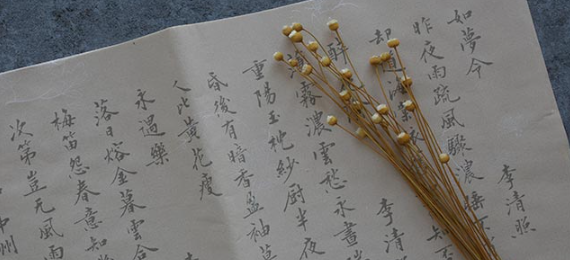 如夢令 李清照
昨夜雨疏風驟濃睡不
却道海棠依 知否
醉 李清
薄霧濃雲愁永晝
重陽玉枕紗厨半夜
昏後有暗香盈袖莫
人比黃花瘦
永遇樂
落日熔金暮雲合
梅笛怨春意知
次第豈无風雨
中州